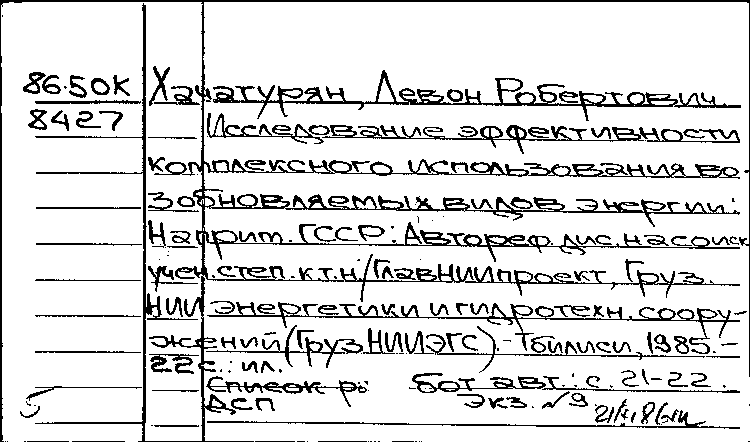 86-50К Хачатурян, Левон Робертович.
8427 Исследование эффективности
комплексного использования во-
зобновляемых видов энергии:
На прим. ГССР: Автореф. дис. на соиск.
учен. степ. к.т.н./ГлавНИИпроект, Груз.
НИИ энергетики и гидротехн. соору-
жений (ГрузНИИЭГС).-Тбилиси, 1985.-
22 с.: ил.
Список ра бот авт.: с. 21-22.
ДСП Экз. №9
5